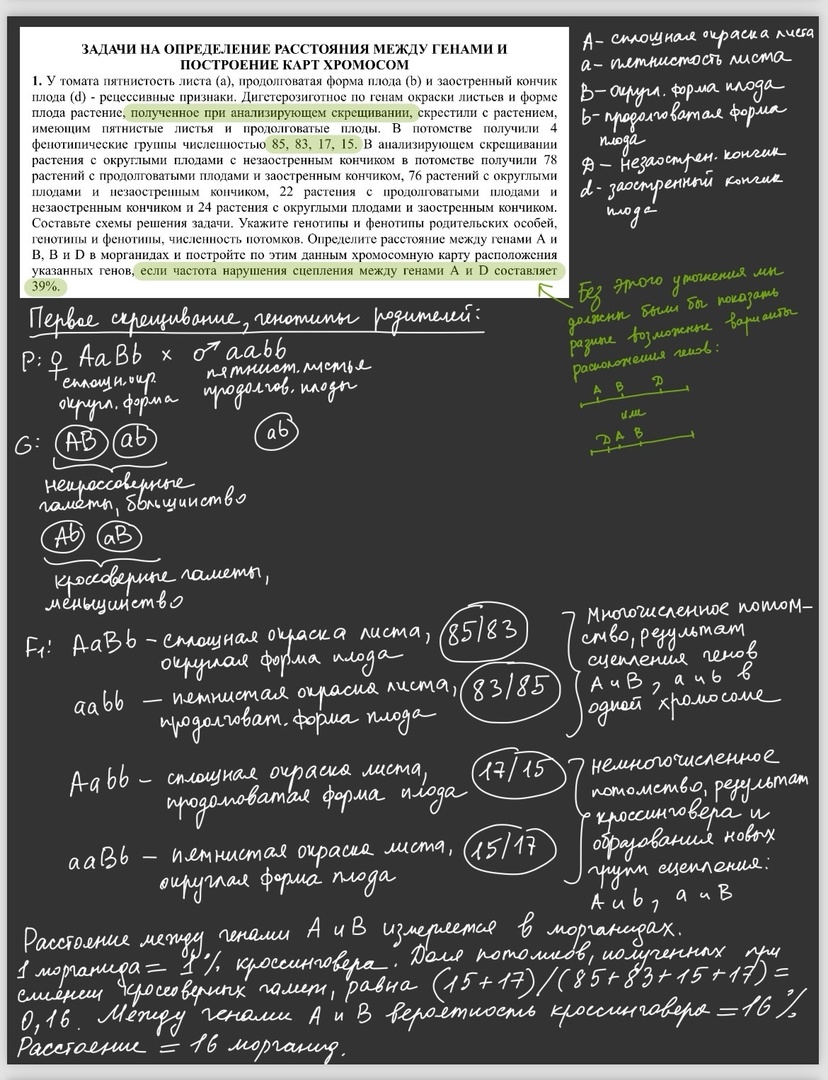 ЗАДАЧИ НА ОПРЕДЕЛЕНИЕ РАССТОЯНИЯ МЕЖДУ ГЕНАМИ И
ПОСТРОЕНИЕ КАРТ ХРОМОСОМ
1. У томата пятнистость листа (a), продолговатая форма плода (b) и заостренный кончик
плода (d) - рецессивные признаки. Дигетерозиготное по генам окраски листьев и форме
плода растение, полученное при анализирующем скрещивании, скрестили с растением,
имеющим пятнистые листья и продолговатые плоды. В потомстве получили 4
фенотипические группы численностью 85, 83, 17, 15. В анализирующем скрещивании
растения с округлыми плодами с незаостренным кончиком в потомстве получили 78
растений с продолговатыми плодами и заостренным кончиком, 76 растений с округлыми
плодами и незаостренным кончиком, 22 растения с продолговатыми плодами и
незаостренным кончиком и 24 растения с округлыми плодами и заостренным кончиком.
Составьте схемы решения задачи. Укажите генотипы и фенотипы родительских особей,
генотипы и фенотипы, численность потомков. Определите расстояние между генами А и
В, В и D в морганидах и постройте по этим данным хромосомную карту расположения
указанных генов, если частота нарушения сцепления между генами А и D составляет
39%.
A - сплошная окраска листа
a - пятнистость листа
B - округл. форма плода
b - продолговатая форма
плода
D - незаострен. кончик
d - заостренный кончик
плода
Без этого уточнения мы
должны были бы показать
разные возможные варианты
расположения генов:
A B D
или
D A B
Первое скрещивание, генотипы родителей:
P: ♀ AaBb × ♂ aabb
сплошн. окр
округл. форма
пятнист. листья
продолгов. плоды
G: AB ab ab
некроссоверные
гаметы, большинство
Ab aB
кроссоверные гаметы,
меньшинство
F1: AaBb - сплошная окраска листа,
округлая форма плода
85/83
aabb - пятнистая окраска листа,
продолговат. форма плода
83/85
Многочисленное потом-
ство, результат
сцепления генов
A и B, a и b в
одной хромосоме
Aabb - сплошная окраска листа,
продолговатая форма плода
17/15
aaBb - пятнистая окраска листа,
округлая форма плода
15/17
немногочисленное
потомство, результат
кроссинговера и
образования новых
групп сцепления:
A и b, a и B
Расстояние между генами A и B измеряется в морганидах.
1 морганида = 1% кроссинговера. Доля потомков, полученных при
слиянии кроссоверных гамет, равна (15+17)/(85+83+15+17)=
0,16. Между генами A и B вероятность кроссинговера = 16%
Расстояние = 16 морганид.